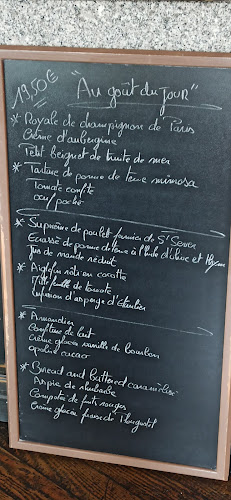 19,50€
"Au goût du jour"
* Royale de champignon de Paris
Crème d'aubergine
Petit beignet de truite de mer
* Tartare de pomme de terre mimosa
Tomate confite
œuf poché
* Suprême de poulet fermier de St Sever
Ecrasé de pomme de terre à l'huile d'olive et
Jus de viande réduit
* Aiglefin rôti en cocotte
Mille feuille de tomate
Infusion d'asperge d'
* Amandier
Confiture de lait
Crème glacée vanille de bourbon
opaline cacao
* Bread and buttered caramélisé
Aspic de rhubarbe
Compotée de fruits rouges
Crème glacée fraise de Plougastel